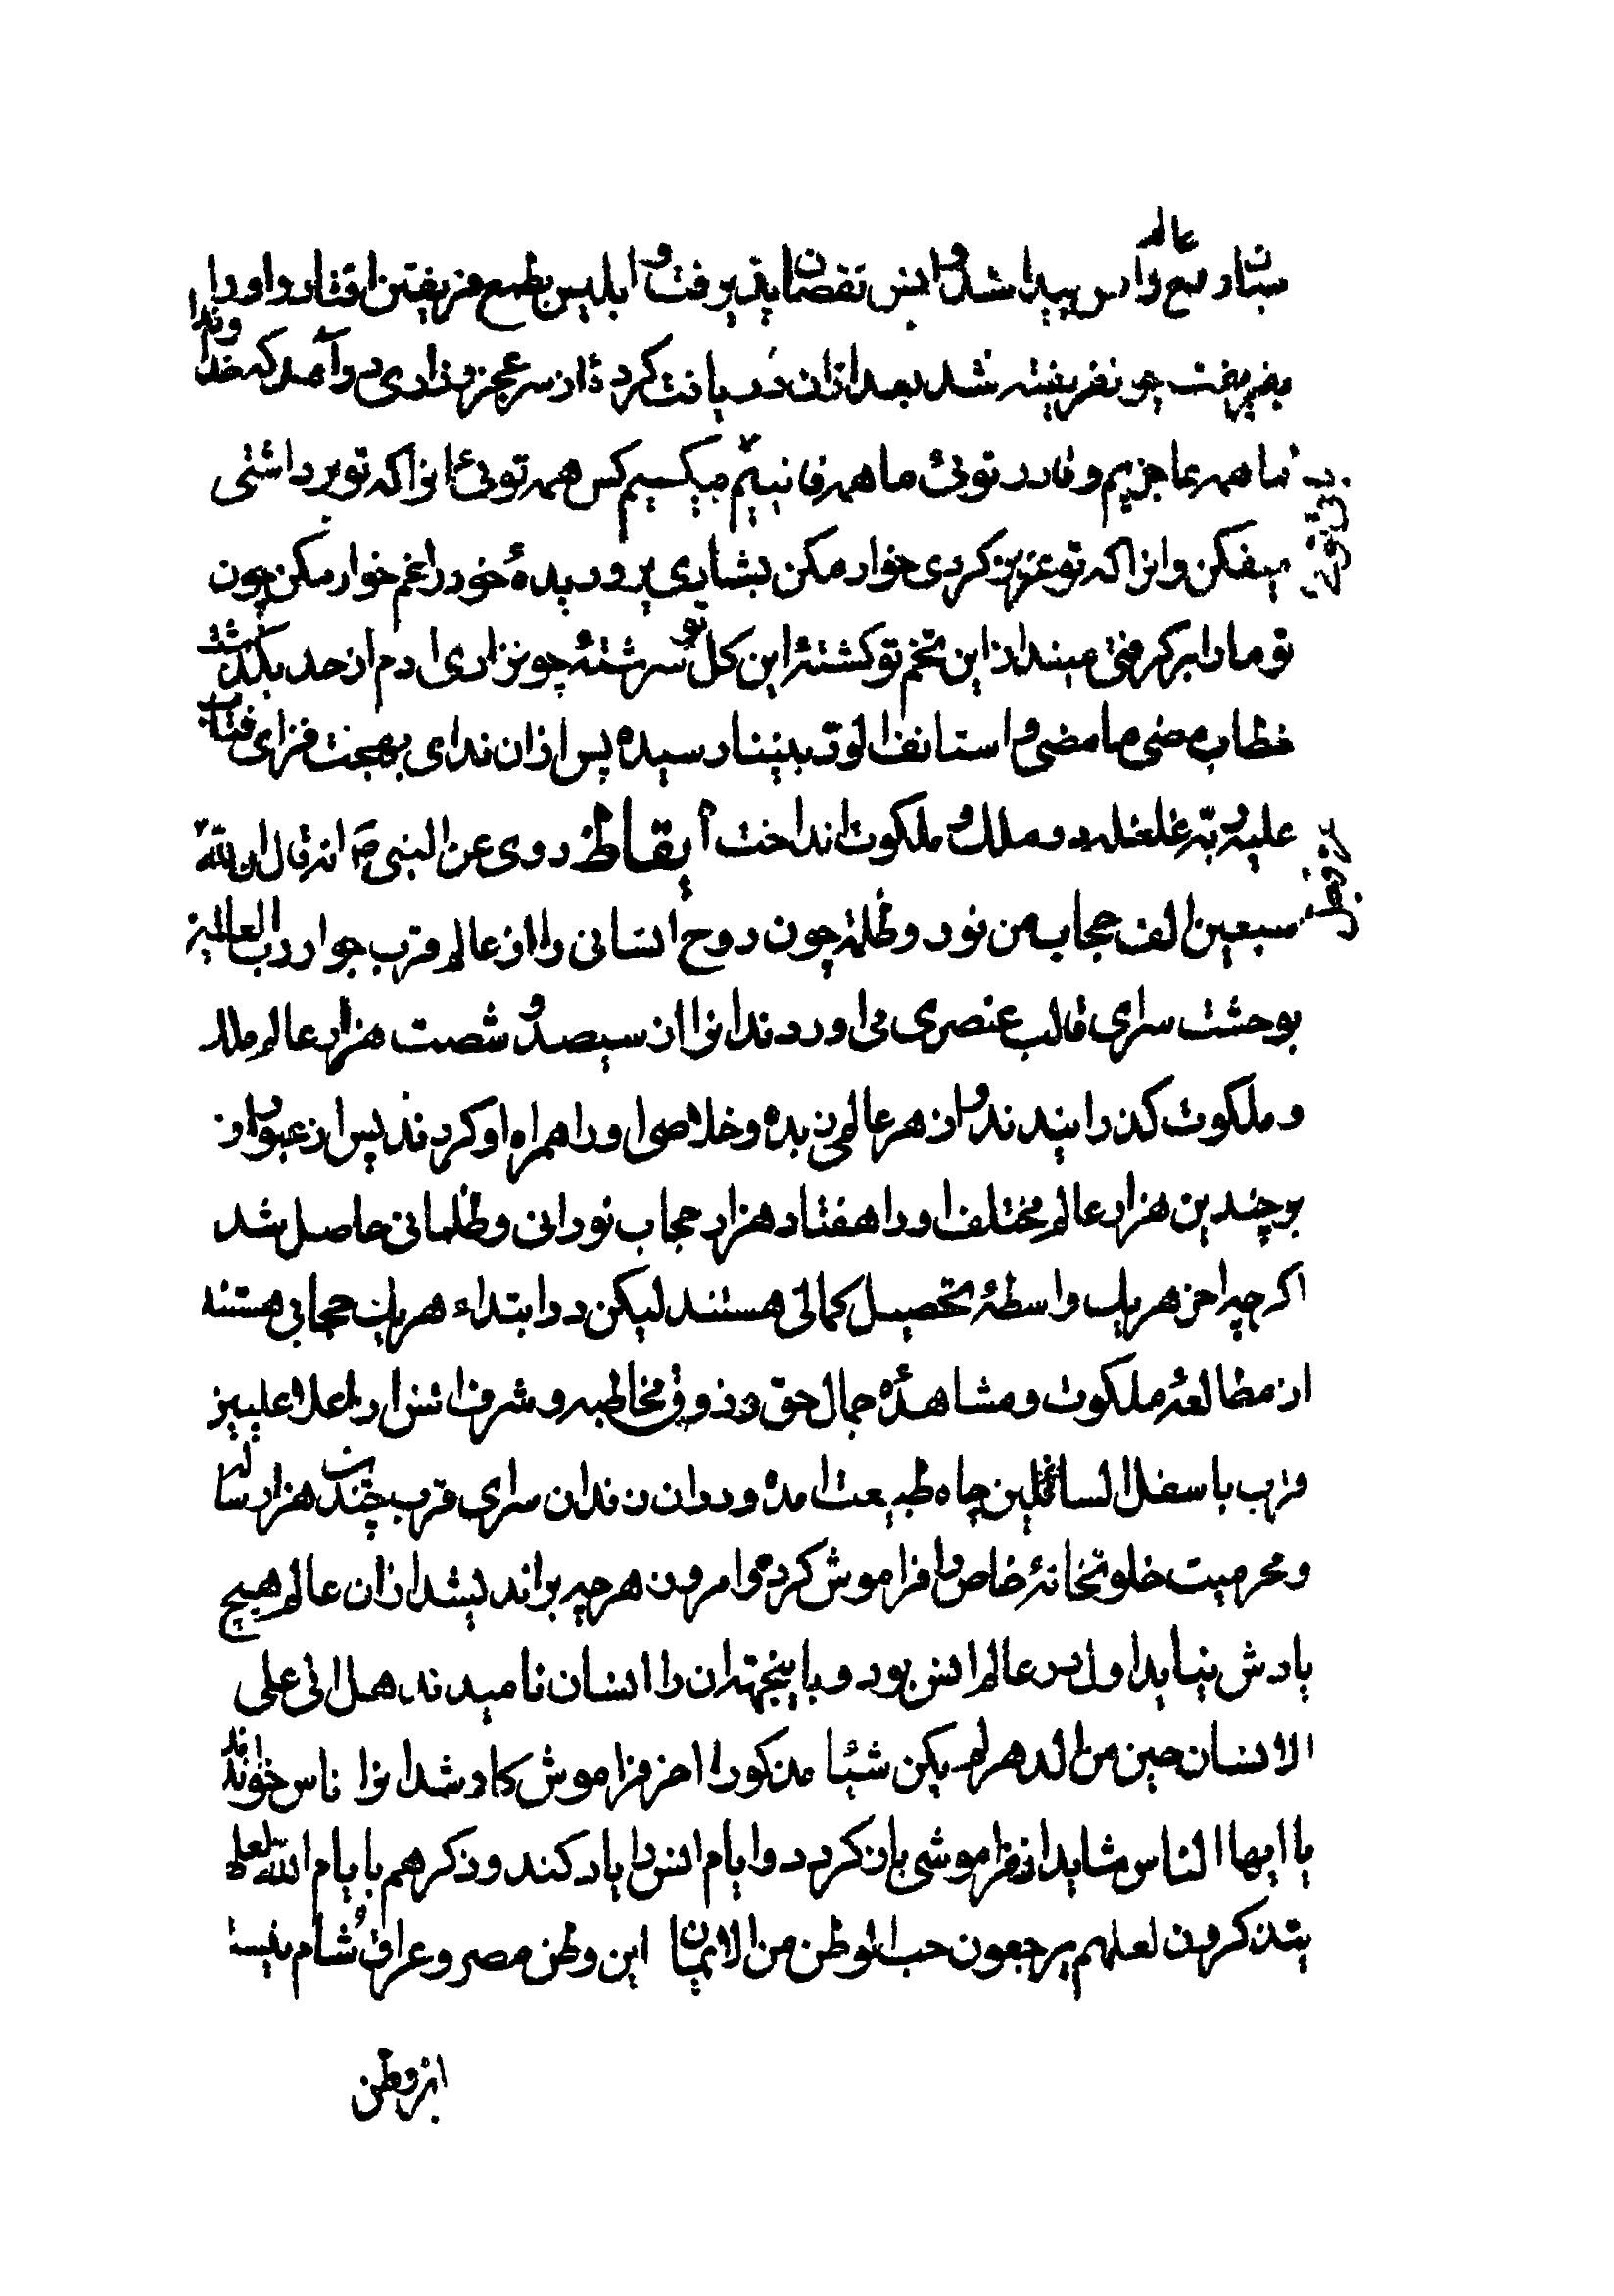 پیدا شد و انس نقصان پذیرفت و ابلیس بطمع فریفتن افتاد و او را
بفریفت چون فریفته شد بعد از آن دریافت کرد از سر عجز و زاری در آمد که خداوندا
ما همه عاجزیم و قادر توئی ما همه فانییم بیکسیم کس همه توئی انرا که تو برداشتی
میفکن و انرا که تو عزیز کردی خوار مکن بشادی پروریدهٔ خود را غم خوار مکن چون
تو ما را برکرفتی مینداز این تخم تو کشتهٔ این کل تو سرشتهٔ چون زاری ادم از حد بکذشت
خطاب مضی ما مضی و استانف الود بیننا رسیده پس از آن ندای بهجت فزای فتاب
علیه و غلغله در ملک و ملکوت انداخت ایقاظ روی عن النبی ص انه قال ان لله
سبعین الف حجاب من نور و ظلمة چون روح انسانی را از عالم قرب جوار رب العالمین
بوحشت سرای قالب عنصری می اوردند انرا از سیصد و شصت هزار عالم ملک
و ملکوت کذرانیدند و از هر عالمی زبده و خلاصی او را همراه او کردند پس از عبور او
بر چندین هزار عالم مختلف او را هفتاد هزار حجاب نورانی و ظلمانی حاصل شد
اکر چه اخر هر یک واسطهٔ تحصیل کمالی هستند لیکن در ابتداء هر یک حجابی هستند
از مطالعهٔ ملکوت و مشاهدهٔ جمال حق و ذوق مخاطبه و شرف انس از اعلا علیین
قرب باسفل السافلین چاه طبیعت امده و در ان زندان سرای قرب چندین هزار ساله
و محرمیت خلوتخانهٔ خاص را فراموش کرده و امروز هر چه براندیشد از آن عالم هیچ
یادش نیاید اول در عالم انس بود و باینجهت ان را انسان نامیدند هل اتی علی
الانسان حین من الدهر لم یکن شیئا مذکورا اخر فراموش کار شد انرا ناس خواندند
یا ایها الناس شاید از فراموشی باز کردد و ایام انس را یاد کند و ذکرهم بایام الله لعلهم
یتذکرون لعلهم یرجعون حب الوطن من الایمان این وطن مصر و عراق و شام نیست
این وطن